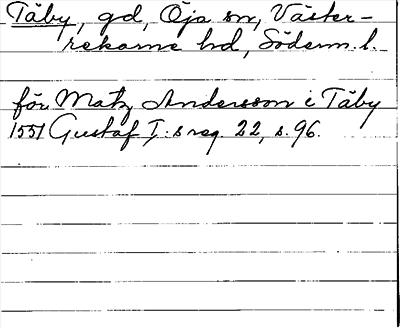 Täby, gd, Öja sn, Väster-
rekarne hd, Söderm. l.
för Matz Andersson i Täby
1551 Gustaf I:s reg. 22, s. 96.